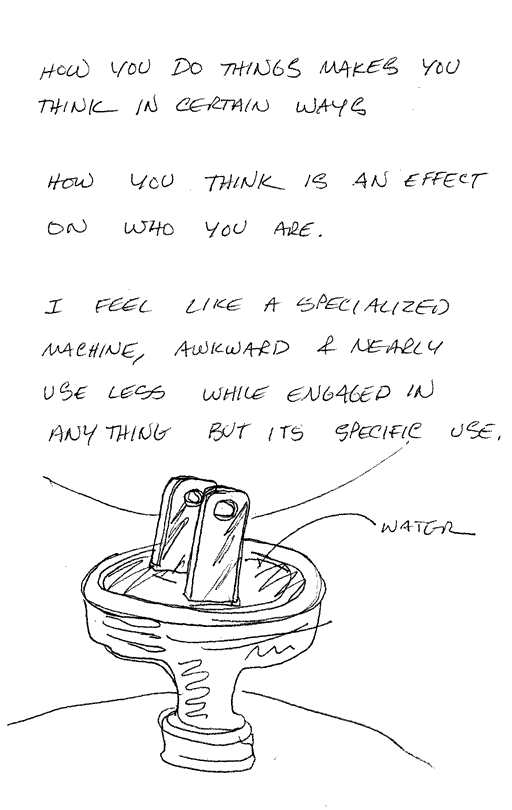 HOW YOU DO THINGS MAKES YOU
THINK IN CERTAIN WAYS
HOW YOU THINK IS AN EFFECT
ON WHO YOU ARE.
I FEEL LIKE A SPECIALIZED
MACHINE, AWKWARD & NEARLY
USE LESS WHILE ENGAGED IN
ANY THING BUT ITS SPECIFIC USE.
WATER